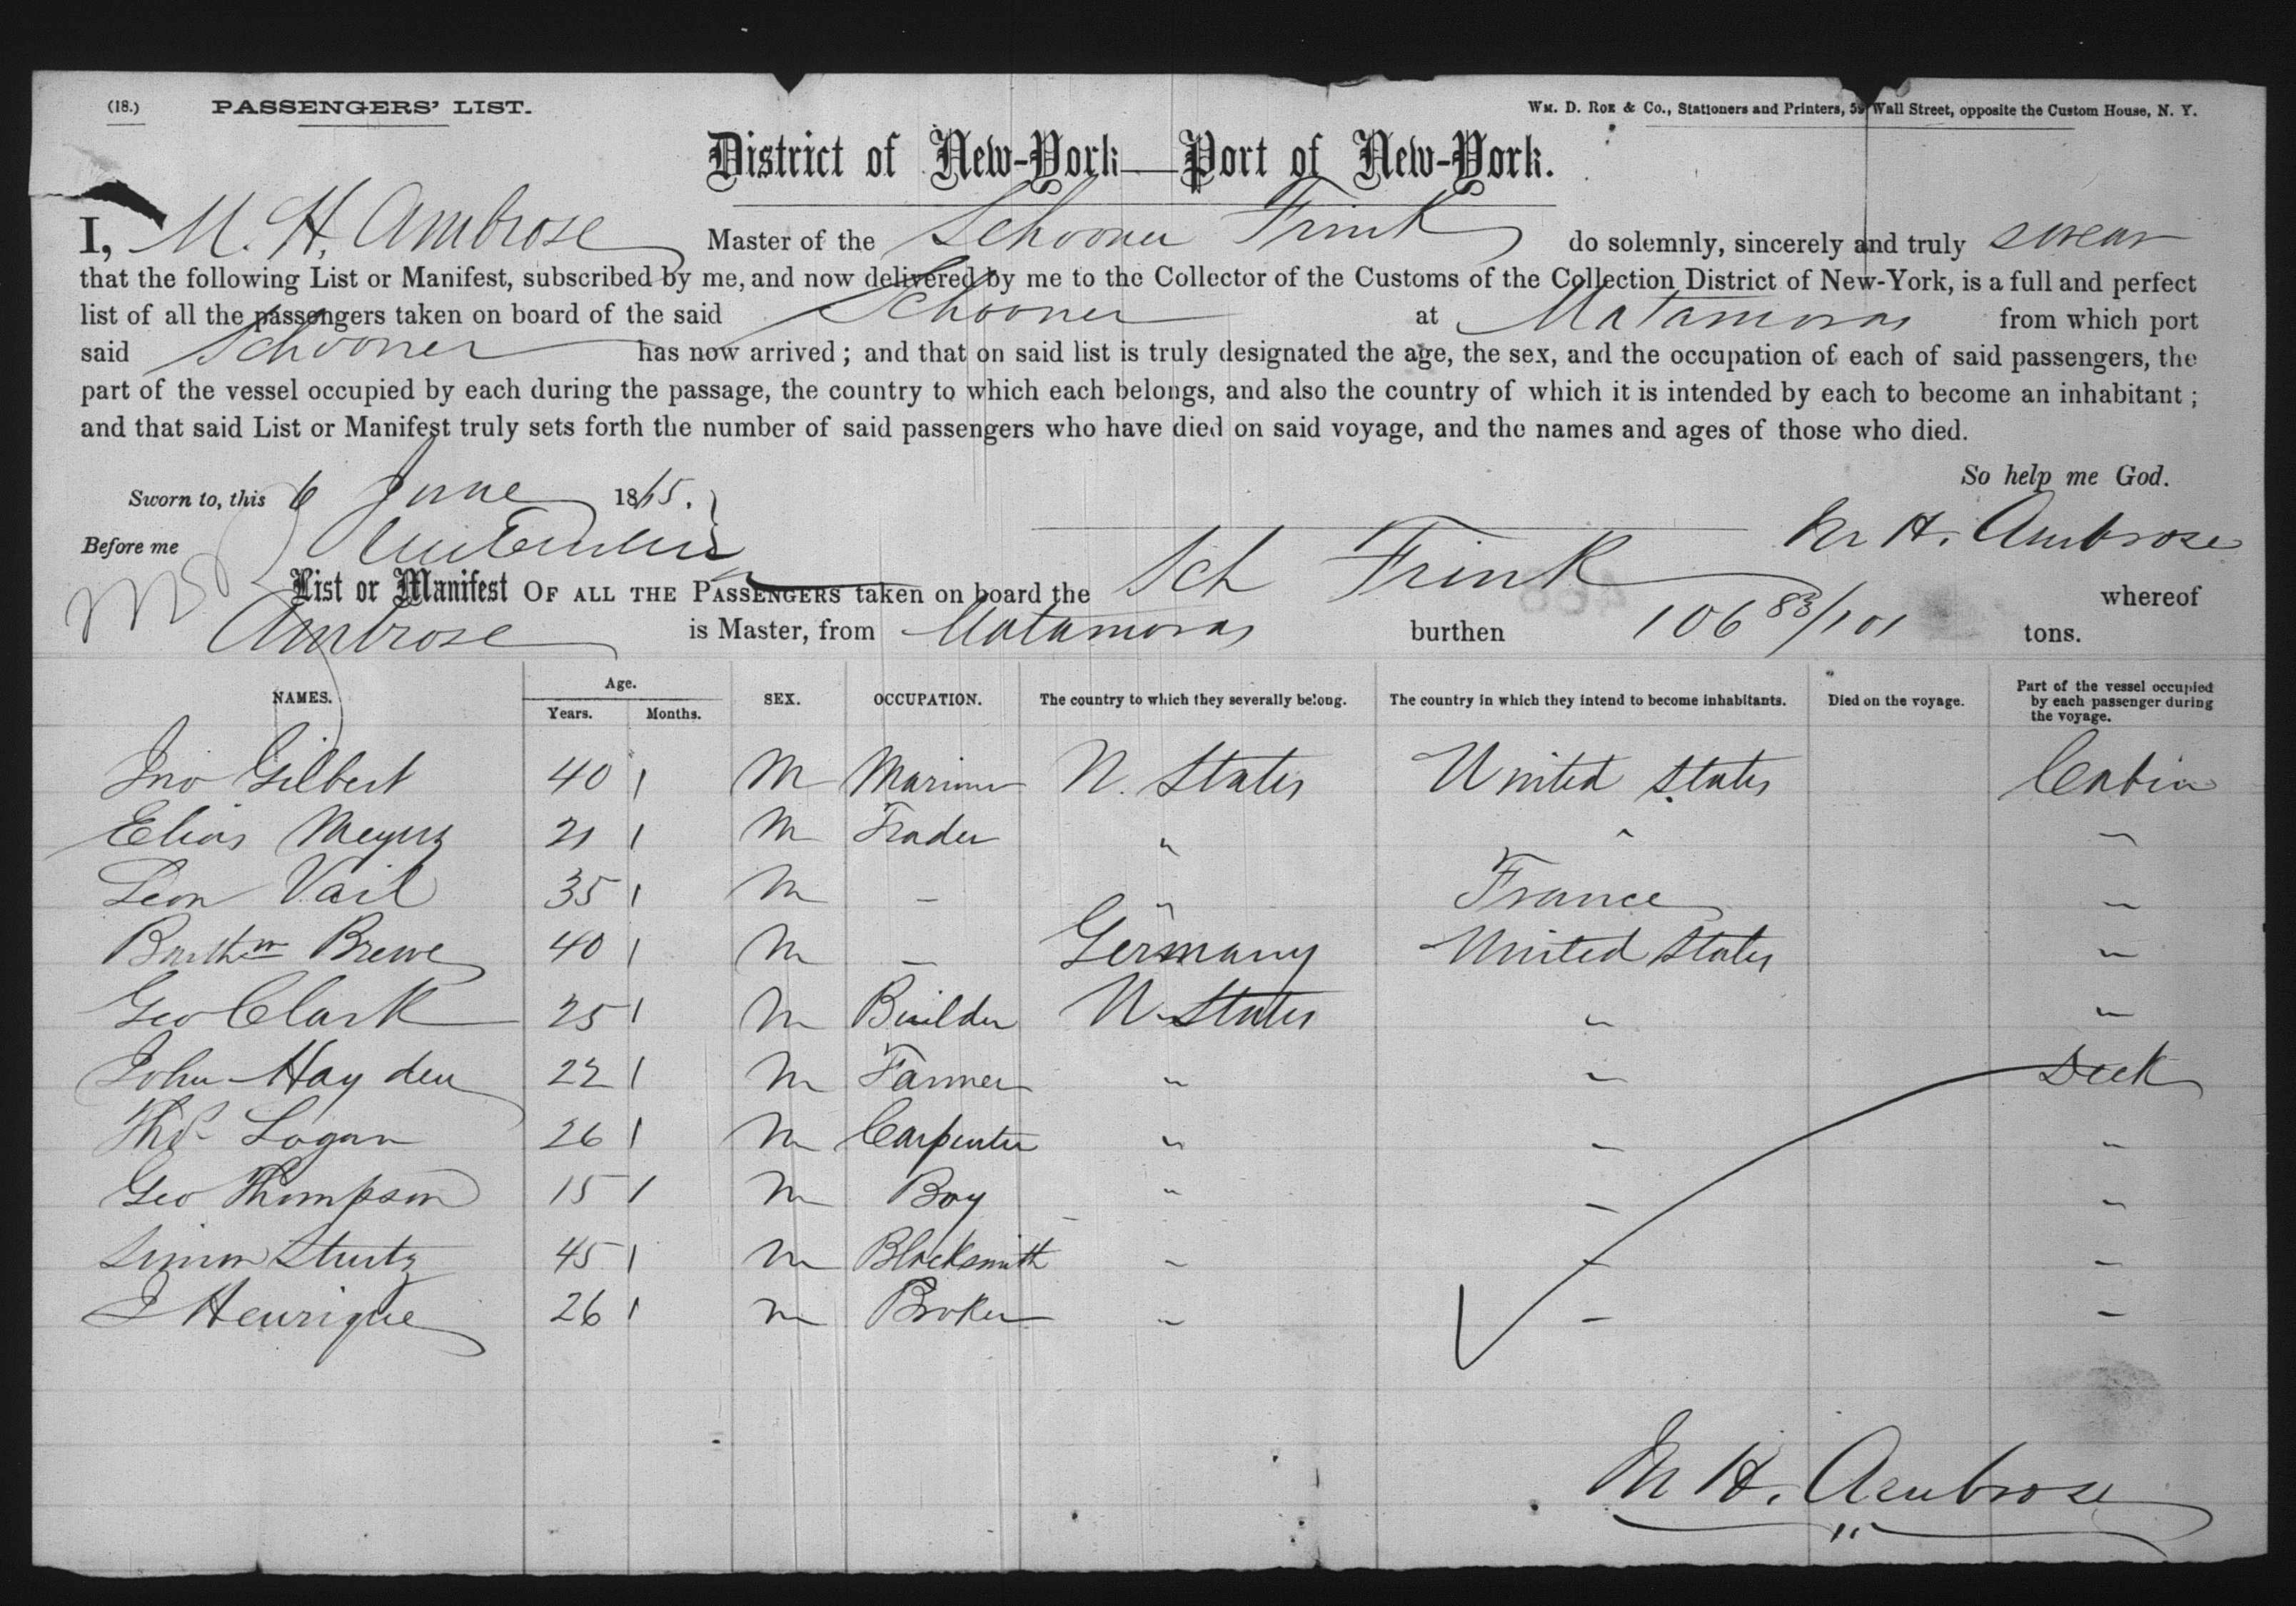 (18.) PASSENGERS' LIST. Wm. D. Roe & Co., Stationers and Printers, 59 Wall Street, opposite the Custom House, N. Y.
District of New-York—Port of New-York.
I, M. H. Ambrose Master of the Schooner Frink do solemnly, sincerely and truly swear
that the following List or Manifest, subscribed by me, and now delivered by me to the Collector of the Customs of the Collection District of New-York, is a full and perfect
list of all the passengers taken on board of the said Schooner at Matamoras from which port
said Schooner has now arrived; and that on said list is truly designated the age, the sex, and the occupation of each of said passengers, the
part of the vessel occupied by each during the passage, the country to which each belongs, and also the country of which it is intended by each to become an inhabitant;
and that said List or Manifest truly sets forth the number of said passengers who have died on said voyage, and the names and ages of those who died.
So help me God.
Sworn to, this 6 June 1865.
Before me M H. Ambrose
List or Manifest OF ALL THE PASSENGERS taken on board the Sch Frink whereof
Ambrose is Master, from Matamoras burthen 106 83/101 tons.
NAMES. Age. Years. Months. SEX. OCCUPATION. The country to which they severally belong. The country in which they intend to become inhabitants. Died on the voyage. Part of the vessel occupied by each passenger during the voyage.
Jno Gilbert 40 1 M Mariner U. States United States Cabin
Elias Meyers 21 1 M Trader " " "
Leon Vail 35 1 M - " France "
Barthw Brewe 40 1 M - Germany United States "
Geo Clark 25 1 M Builder U. States " "
John Hayden 22 1 M Farmer " " Deck
Thos Logan 26 1 M Carpenter " " "
Geo Thompson 15 1 M Boy " " "
Simon Stutz 45 1 M Blacksmith " " "
J Henrique 26 1 M Broker " " "
M H. Ambrose